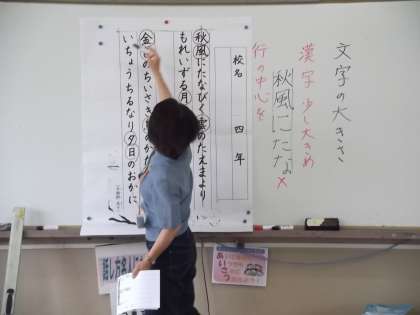 文字の大きさ
漢字 少し大きめ
秋風にたな
×
行の中心を
校名 四年
秋風にたなびく雲のたえまより
もれいずる月
金 のちいさき のかた
いちょうちるなり夕日のおかに